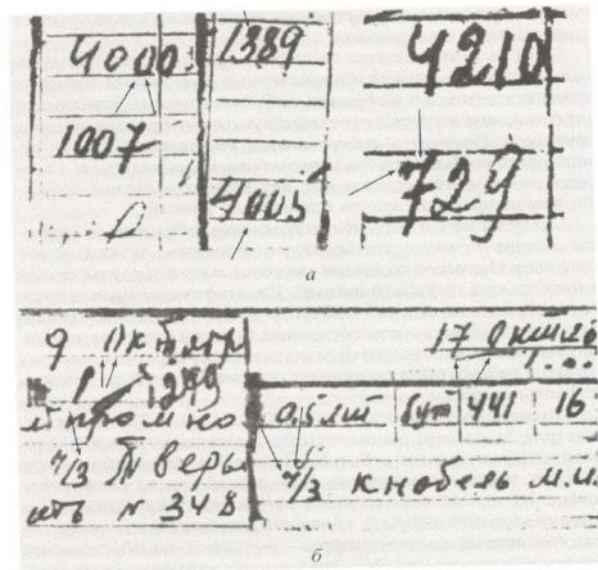 4000
1007
1389
4003
4210
729
а
9 Октябр
1
1249
м про м но
ч/з Тверь
ать № 348
17 Октяб
0.5 лт бут 441 16
ч/з Кнобель М.И.
б